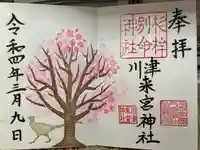 奉拝
杉桙
別命
神社
川津来宮神社
令和四年三月九日